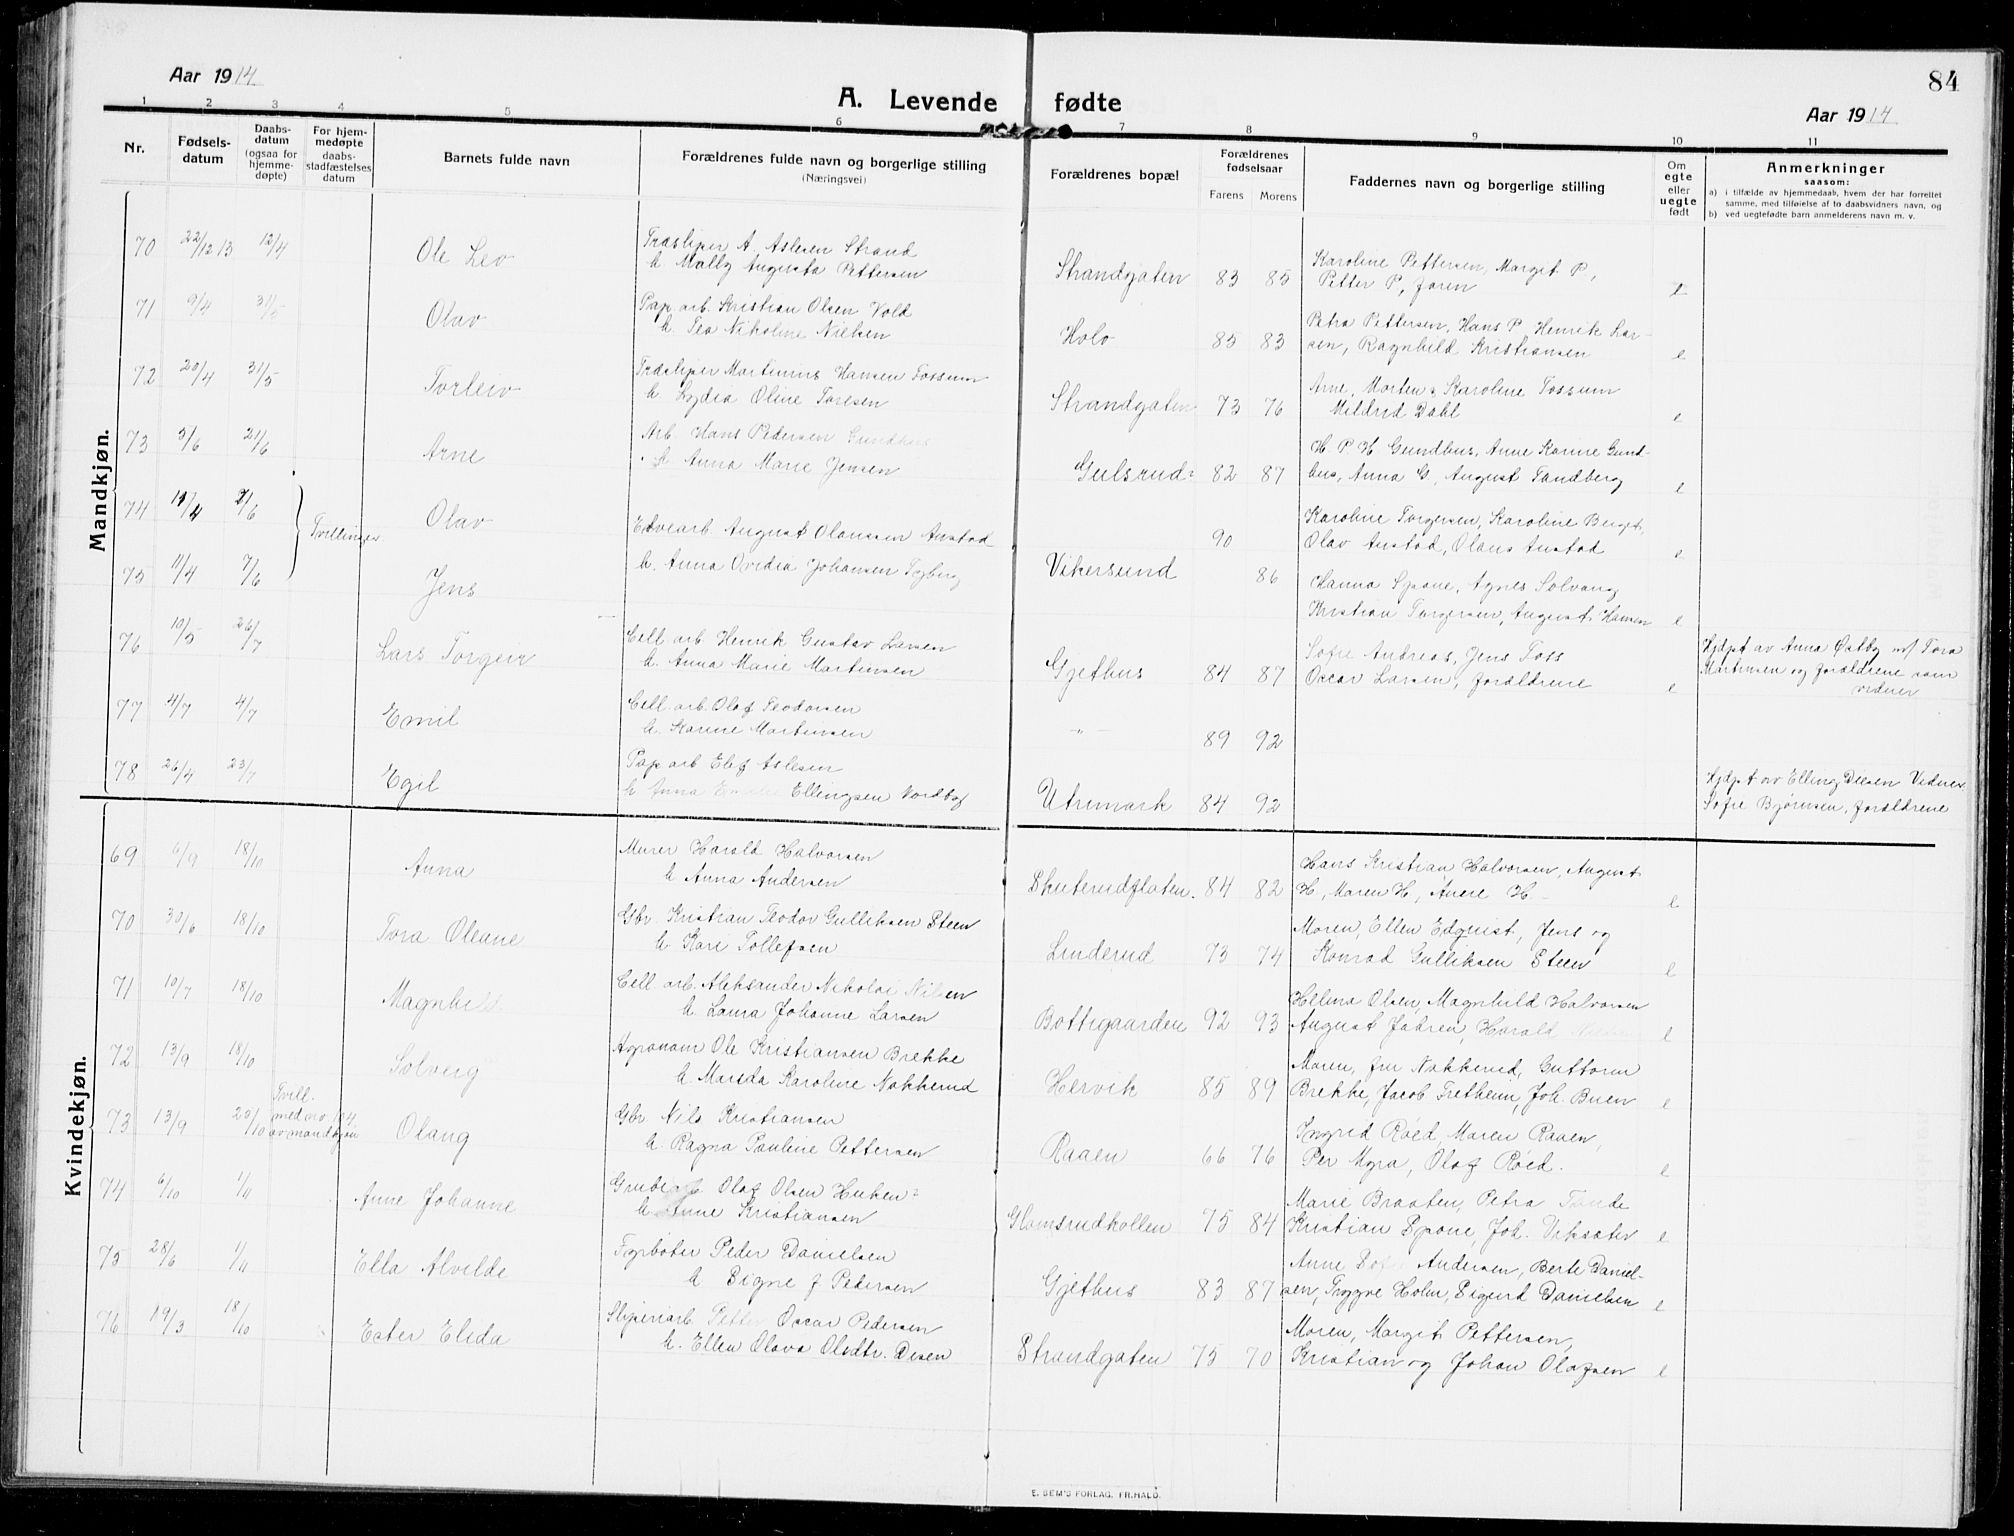 Aar 1914
A. Levende fødte
84
Aar 1914
1 2 3 4 5 6 7 8 9 10 11
Nr.
Fødsels-
datum
Daabs-
datum
(ogsaa for
hjemme-
døpte)
For hjem-
medøpte
daabs-
stadfæstelses
datum
Barnets fulde navn
Forældrenes fulde navn og borgerlige stilling
(Næringsvei)
Forældrenes bopæl
Forældrenes
fødselsaar
Farens Morens
Faddernes navn og borgerlige stilling
Om
egte
eller
uegte
født
Anmerkninger
saasom:
a) i tilfælde av hjemmedaab, hvem der har forrettet
samme, med tilføielse af to daabsvidners navn, og
b) ved uegtefødte barn anmelderens navn m. v.
Mandkjøn.
70 22/12 13 12/4 Ole Leo
Træsliper A. Aslesen Strand
h. Mally Augusta Pettersen
Strandgaten 83 85
Karoline Pettersen, Margit P,
Petter P, faren
71 9/4 31/5 Olav
Pap. arb. Kristian Olsen Vold
h. Tea Nikoline Nielsen
Holo 85 83
Petra Pettersen, Hans P, Henrik Lar-
sen, Ragnhild Kristiansen e
72 20/4 31/5 Torleiv
Træsliper Martinius Hansen Fossum
h. Lydia Oline Toresen
Strandgaten 73 76
Arne, Morten, Karoline Fossum
Mildrid Dahl e
73 5/6 21/6 Arne
Arb. Hans Pedersen Gundhus
h. Anna Marie Jensen
Gulsrud 82 87
H P H Gundhus, Anne Karine Gund-
hus, Anna G., August Tandberg e
74 11/4 7/6 Tvillinger Olav
Elvearb. August Olaussen Austad
90
Karoline Torgersen, Karoline Berget,
Olav Austad, Olaus Austad e
75 11/4 7/6 Jens
h. Anna Ovidia Johansen Nyberg
Vikersund 86
Hanna Spone, Agnes Solvang
Kristian Torgersen, August Hansen e
76 10/5 26/7 Lars Torgeir
Cell. arb. Henrik Gustav Larsen
h. Anna Marie Martinsen
Gjethus 84 87
Sofie Andreas, Jens Foss
Oscar Larsen, forældrene e
Hjdpt av Anna Østby m/ Tora
Martinsen og forældrene som
vidner
77 4/7 4/7 Emil
Cell. arb. Olaf Teodorsen
h. Karine Martinsen
" 89 92
78 26/4 23/7 Egil
Pap arb Elef Aslesen
h Anna Emilie Ellingsen Nordby
Utremark 84 92
Hjdpt av Elling Diesen Vidner
Sofie Bjørnsen, forældrene
Kvindekjøn.
69 6/9 18/10 Anna
Murer Harald Halvorsen
h Anna Andersen
Skuterudflaten. 84 82
Hans Kristian Halvorsen, August
H., Maren H, Anne H. e
70 30/6 18/10 Tora Oleane
Gbr. Kristian Teodor Gulliksen Steen
h Kari Tollefsen
Linderud 73 74
Moren, Ellen Edquist, Jens og
Konrad Gulliksen Steen e
71 10/7 18/10 Magnhild
Cell. arb. Aleksander Nikolai Nilsen
h Laura Johanne Larsen
Bottegaarden 92 93
Helina Olsen, Magnhild Halvorsen
August Jahren, Harald Nilsen e
72 13/9 18/10 Solveig
Agronom Ole Kristiansen Brekke
h Marda Karoline Nokkerud
Hervik 85 89
Moren, fru Nokkerud, Guttorm
Brekke, Jacob Fretheim, Joh. Buen e
73 13/9 20/10
Tvill.
med no. 104
av mandkjøn
Olaug
Gbr. Nils Kristiansen
h. Ragna Pauline Pettersen
Raaen 66 76
Ingrid Røed, Maren Raaen,
Per Myra, Olaf Røed. e
74 6/10 1/11 Anne Johanne
Grubearb. Olaf Olsen Huken
h. Anne Kristiansen
Glomsrudkollen 75 84
Marie Braaten, Petra Tande
Kristian Spone, Joh. Viksæter e
75 28/6 1/11 Ella Alvilde
Fyrbøter Peder Danielsen
h Signe f Pedersen
Gjethus 83 87
Anne Sofie Andersen, Berte Daniel-
sen, Trygve Holm, Sigurd Danielsen e
76 19/3 18/10 Ester Elida
Sliperiarb. Petter Oscar Pedersen
h. Ellen Olava Olsdtr. Disen
Strandgaten 75 70
Moren, Margit Pettersen,
Kristian og Johan Olafsen e
E. SEM'S FORLAG. FR.HALD.